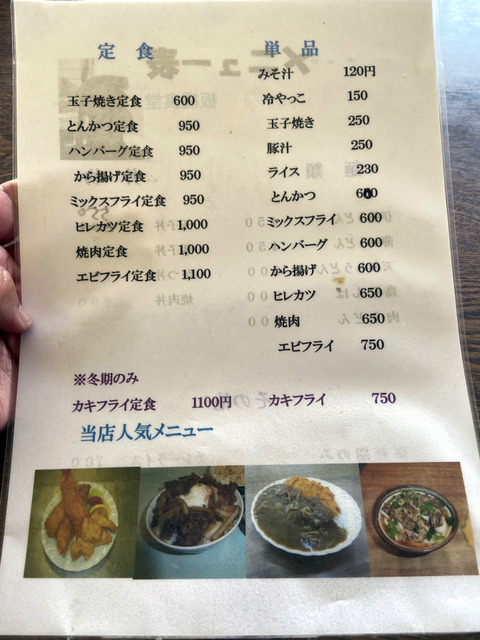 定食
玉子焼き定食 600
とんかつ定食 950
ハンバーグ定食 950
から揚げ定食 950
ミックスフライ定食 950
ヒレカツ定食 1,000
焼肉定食 1,000
エビフライ定食 1,100
単品
みそ汁 120円
冷やっこ 150
玉子焼き 250
豚汁 250
ライス 230
とんかつ 600
ミックスフライ 600
ハンバーグ 600
から揚げ 600
ヒレカツ 650
焼肉 650
エビフライ 750
※冬期のみ
カキフライ定食 1100円
カキフライ 750
当店人気メニュー